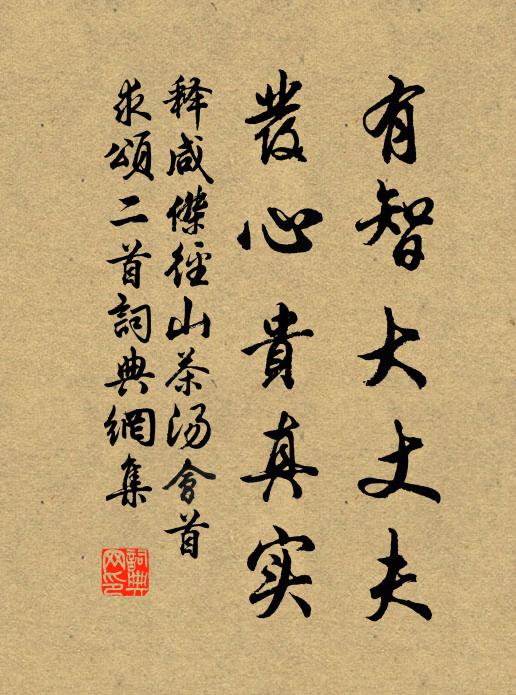 有智大丈夫
發心貴真实
释咸傑徑山茶汤會首
求頌二首詞典網集
詞典网印